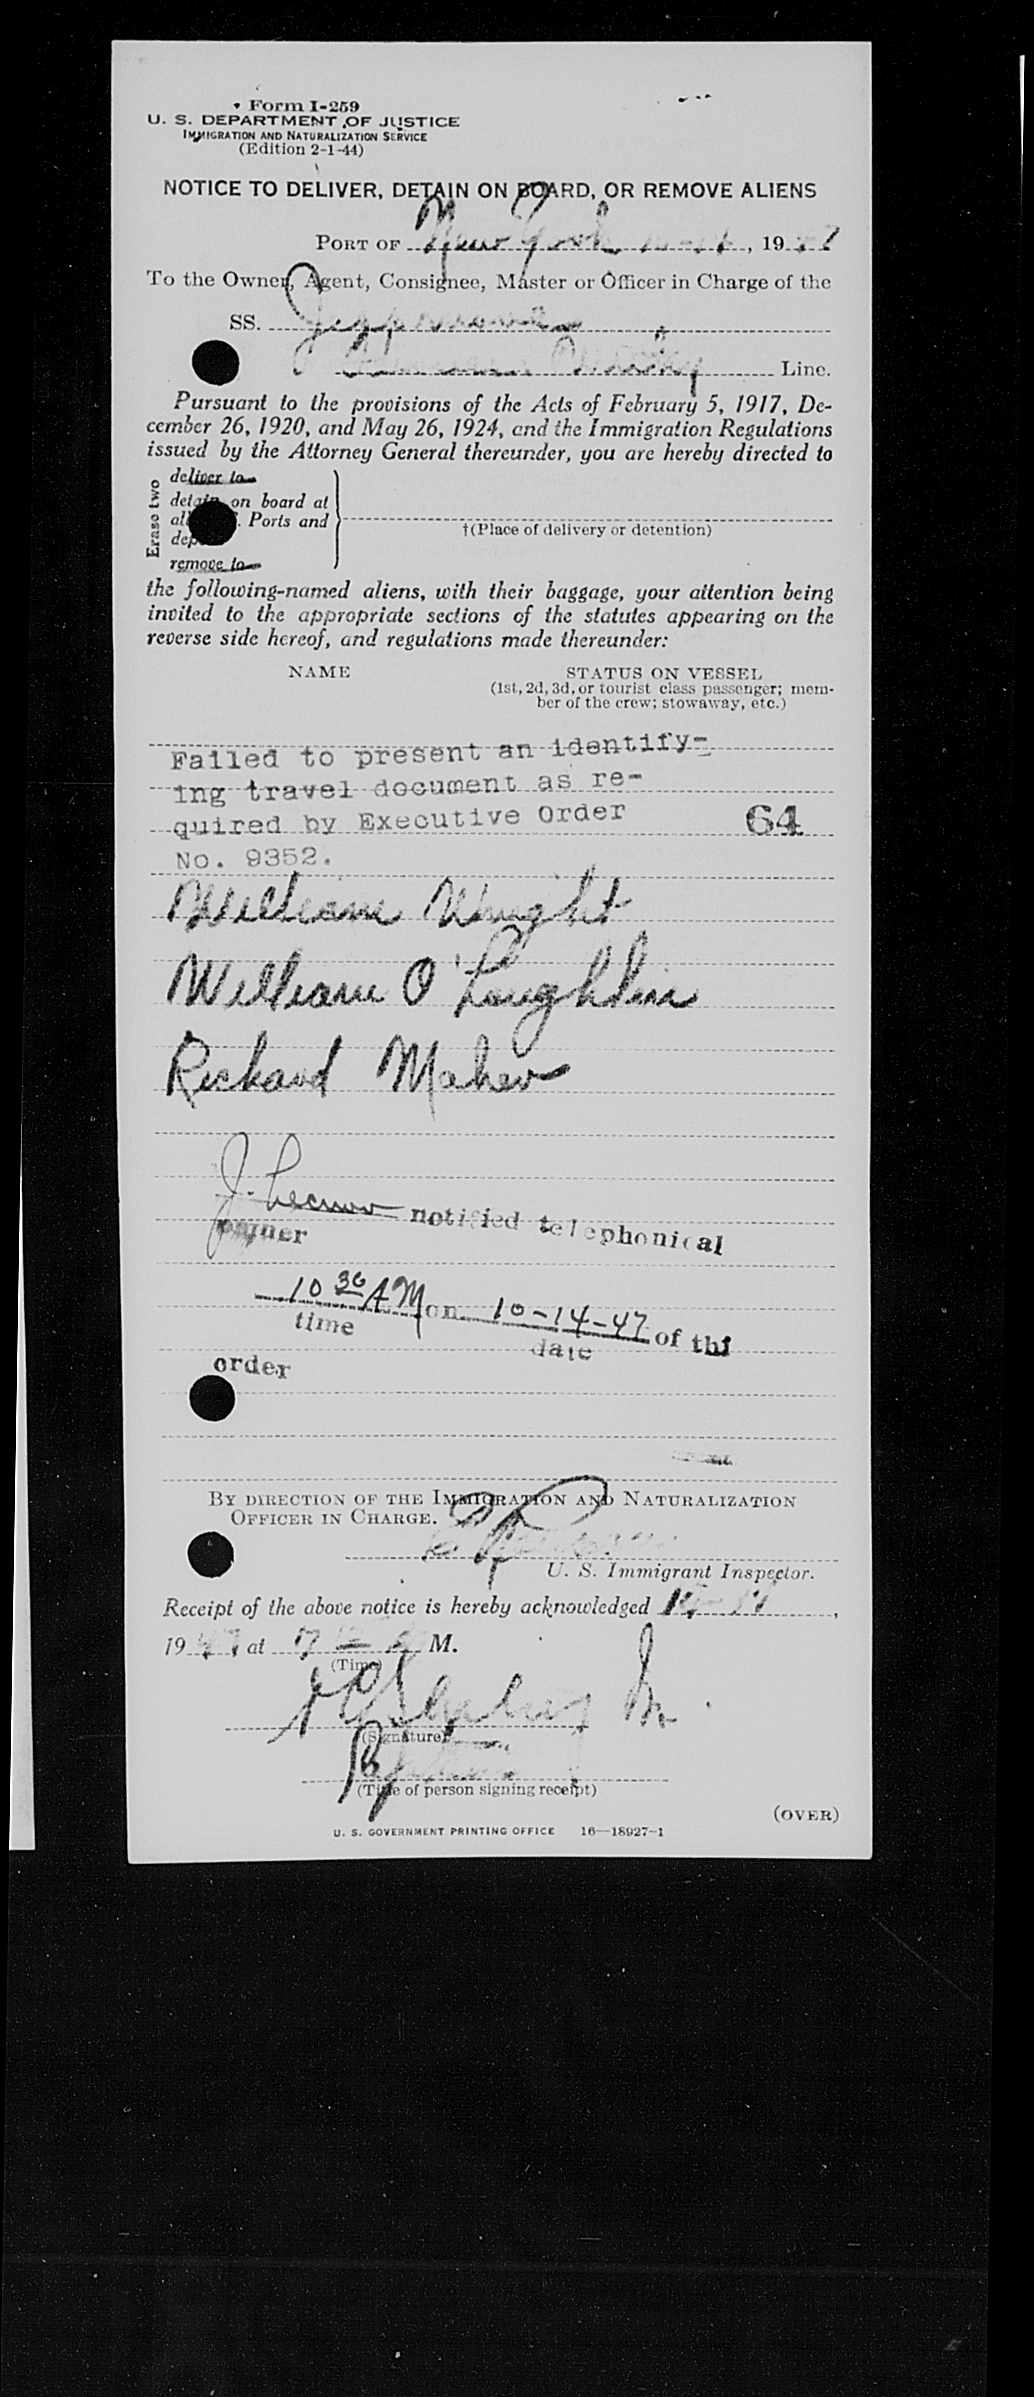 Form I-259
U. S. DEPARTMENT OF JUSTICE
IMMIGRATION AND NATURALIZATION SERVICE
(Edition 2-1-44)
NOTICE TO DELIVER, DETAIN ON BOARD, OR REMOVE ALIENS
PORT OF New York 10-14, 1947
To the Owner, Agent, Consignee, Master or Officer in Charge of the
SS.
Line.
Pursuant to the provisions of the Acts of February 5, 1917, De-
cember 26, 1920, and May 26, 1924, and the Immigration Regulations
issued by the Attorney General thereunder, you are hereby directed to
Erase two
deliver to
detain on board at
all . Ports and
remove to
†(Place of delivery or detention)
the following-named aliens, with their baggage, your attention being
invited to the appropriate sections of the statutes appearing on the
reverse side hereof, and regulations made thereunder:
NAME STATUS ON VESSEL
(1st, 2d, 3d, or tourist class passenger; mem-
ber of the crew; stowaway, etc.)
Failed to present an identify-
ing travel document as re-
quired by Executive Order 64
No. 9352.
William Wright
William O'Loughlin
Richard Maher
J. notified telephonical
10 30 AM on 10-14-47 of thi
time date
order
BY DIRECTION OF THE IMMIGRATION AND NATURALIZATION
OFFICER IN CHARGE.
U. S. Immigrant Inspector.
Receipt of the above notice is hereby acknowledged 10-14,
1947 at M.
(Time)
(Signature)
(Title of person signing receipt)
(OVER)
U. S. GOVERNMENT PRINTING OFFICE 16—18927-1